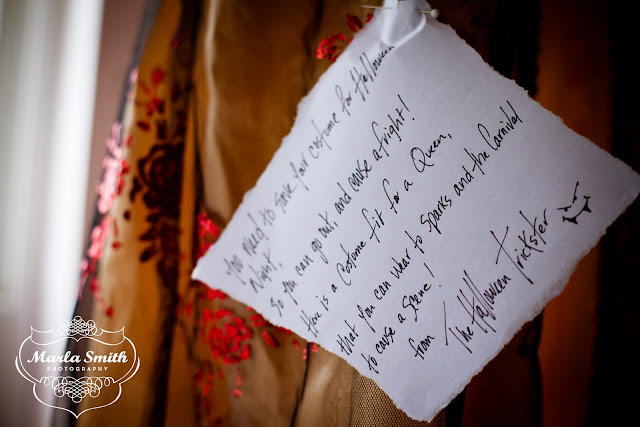 You need to save your costume for Halloween
Night,
So you can go out, and cause a fright!
Here is a Costume fit for a Queen,
that you can wear to Sparks and the Carnival
to cause a Scene!
from The Halloween Trickster
Marla Smith
PHOTOGRAPHY